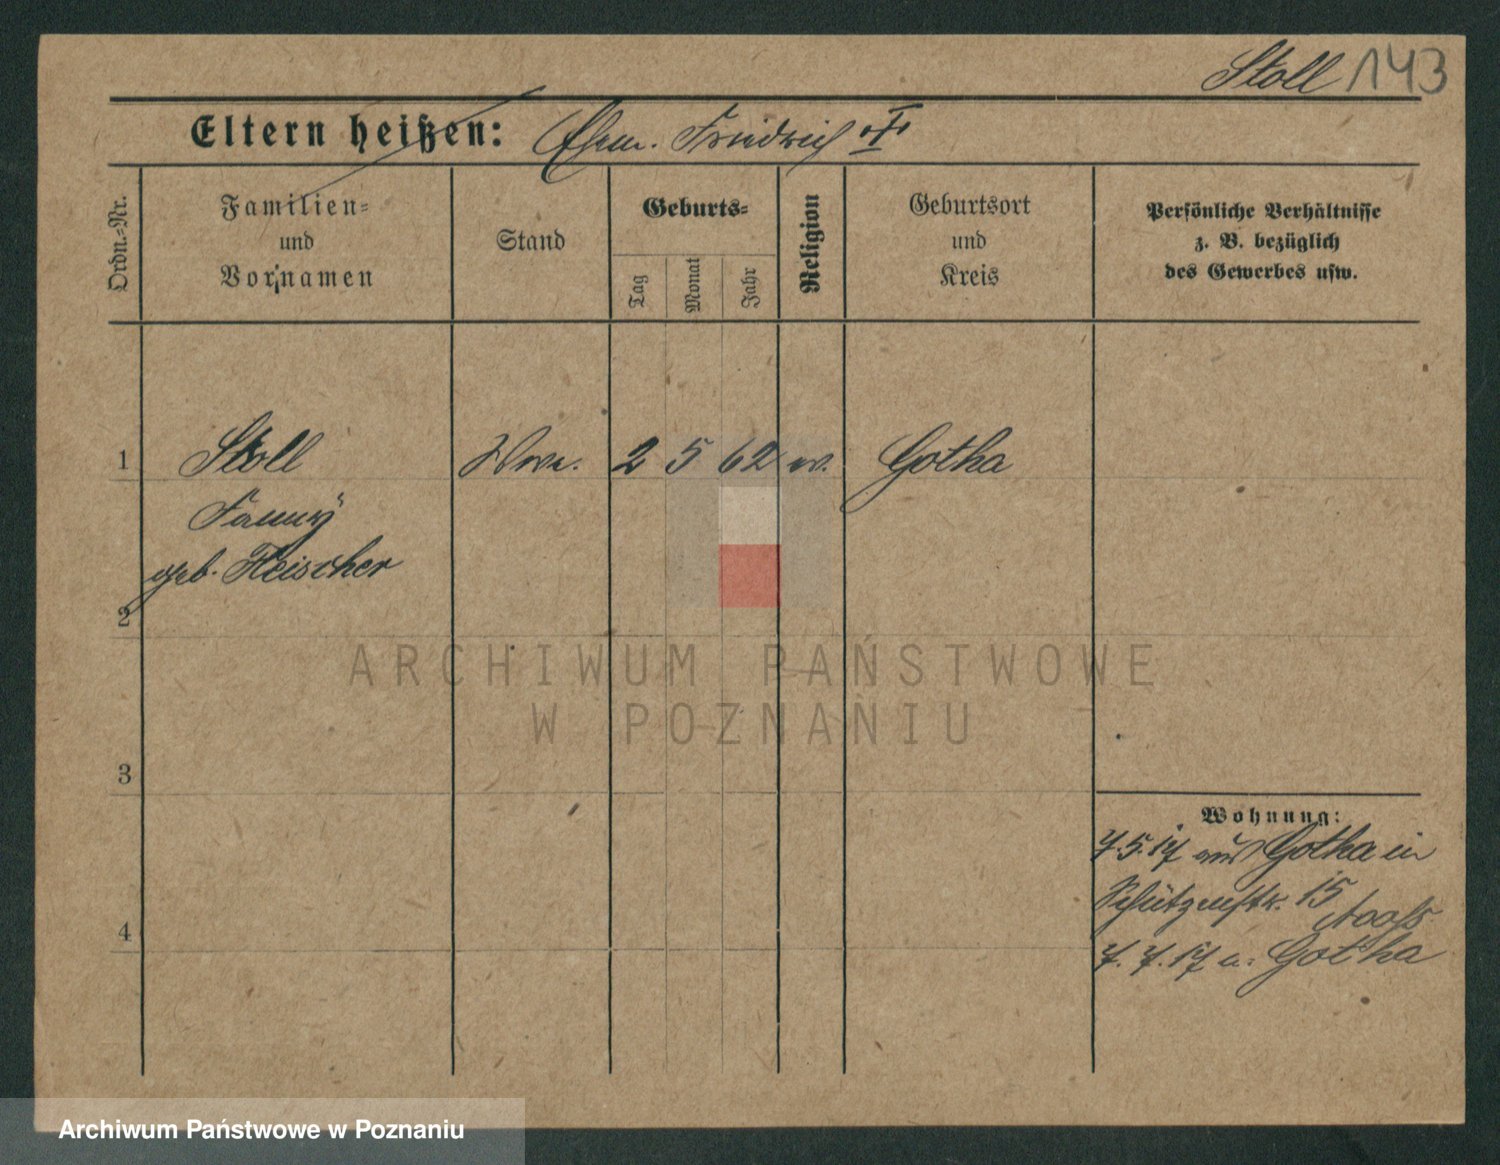 Stoll 143
Eltern heißen: Ehem. Friedrich
Ordn.-Nr.
Familien-
und
Vornamen
Stand
Geburts-
Tag
Monat
Jahr
Religion
Geburtsort
und
Kreis
Persönliche Verhältnisse
z. B. bezüglich
des Gewerbes usw.
1 Stoll Wwe. 2 5 62 ev. Gotha
Fanny
geb. Fleischer
2
ARCHIWUM PAŃSTWOWE
W POZNANIU
3
4
Wohnung:
7.5.17 aus Gotha in
Schützenstr. 15
7.7.17 n. Gotha
Archiwum Państwowe w Poznaniu